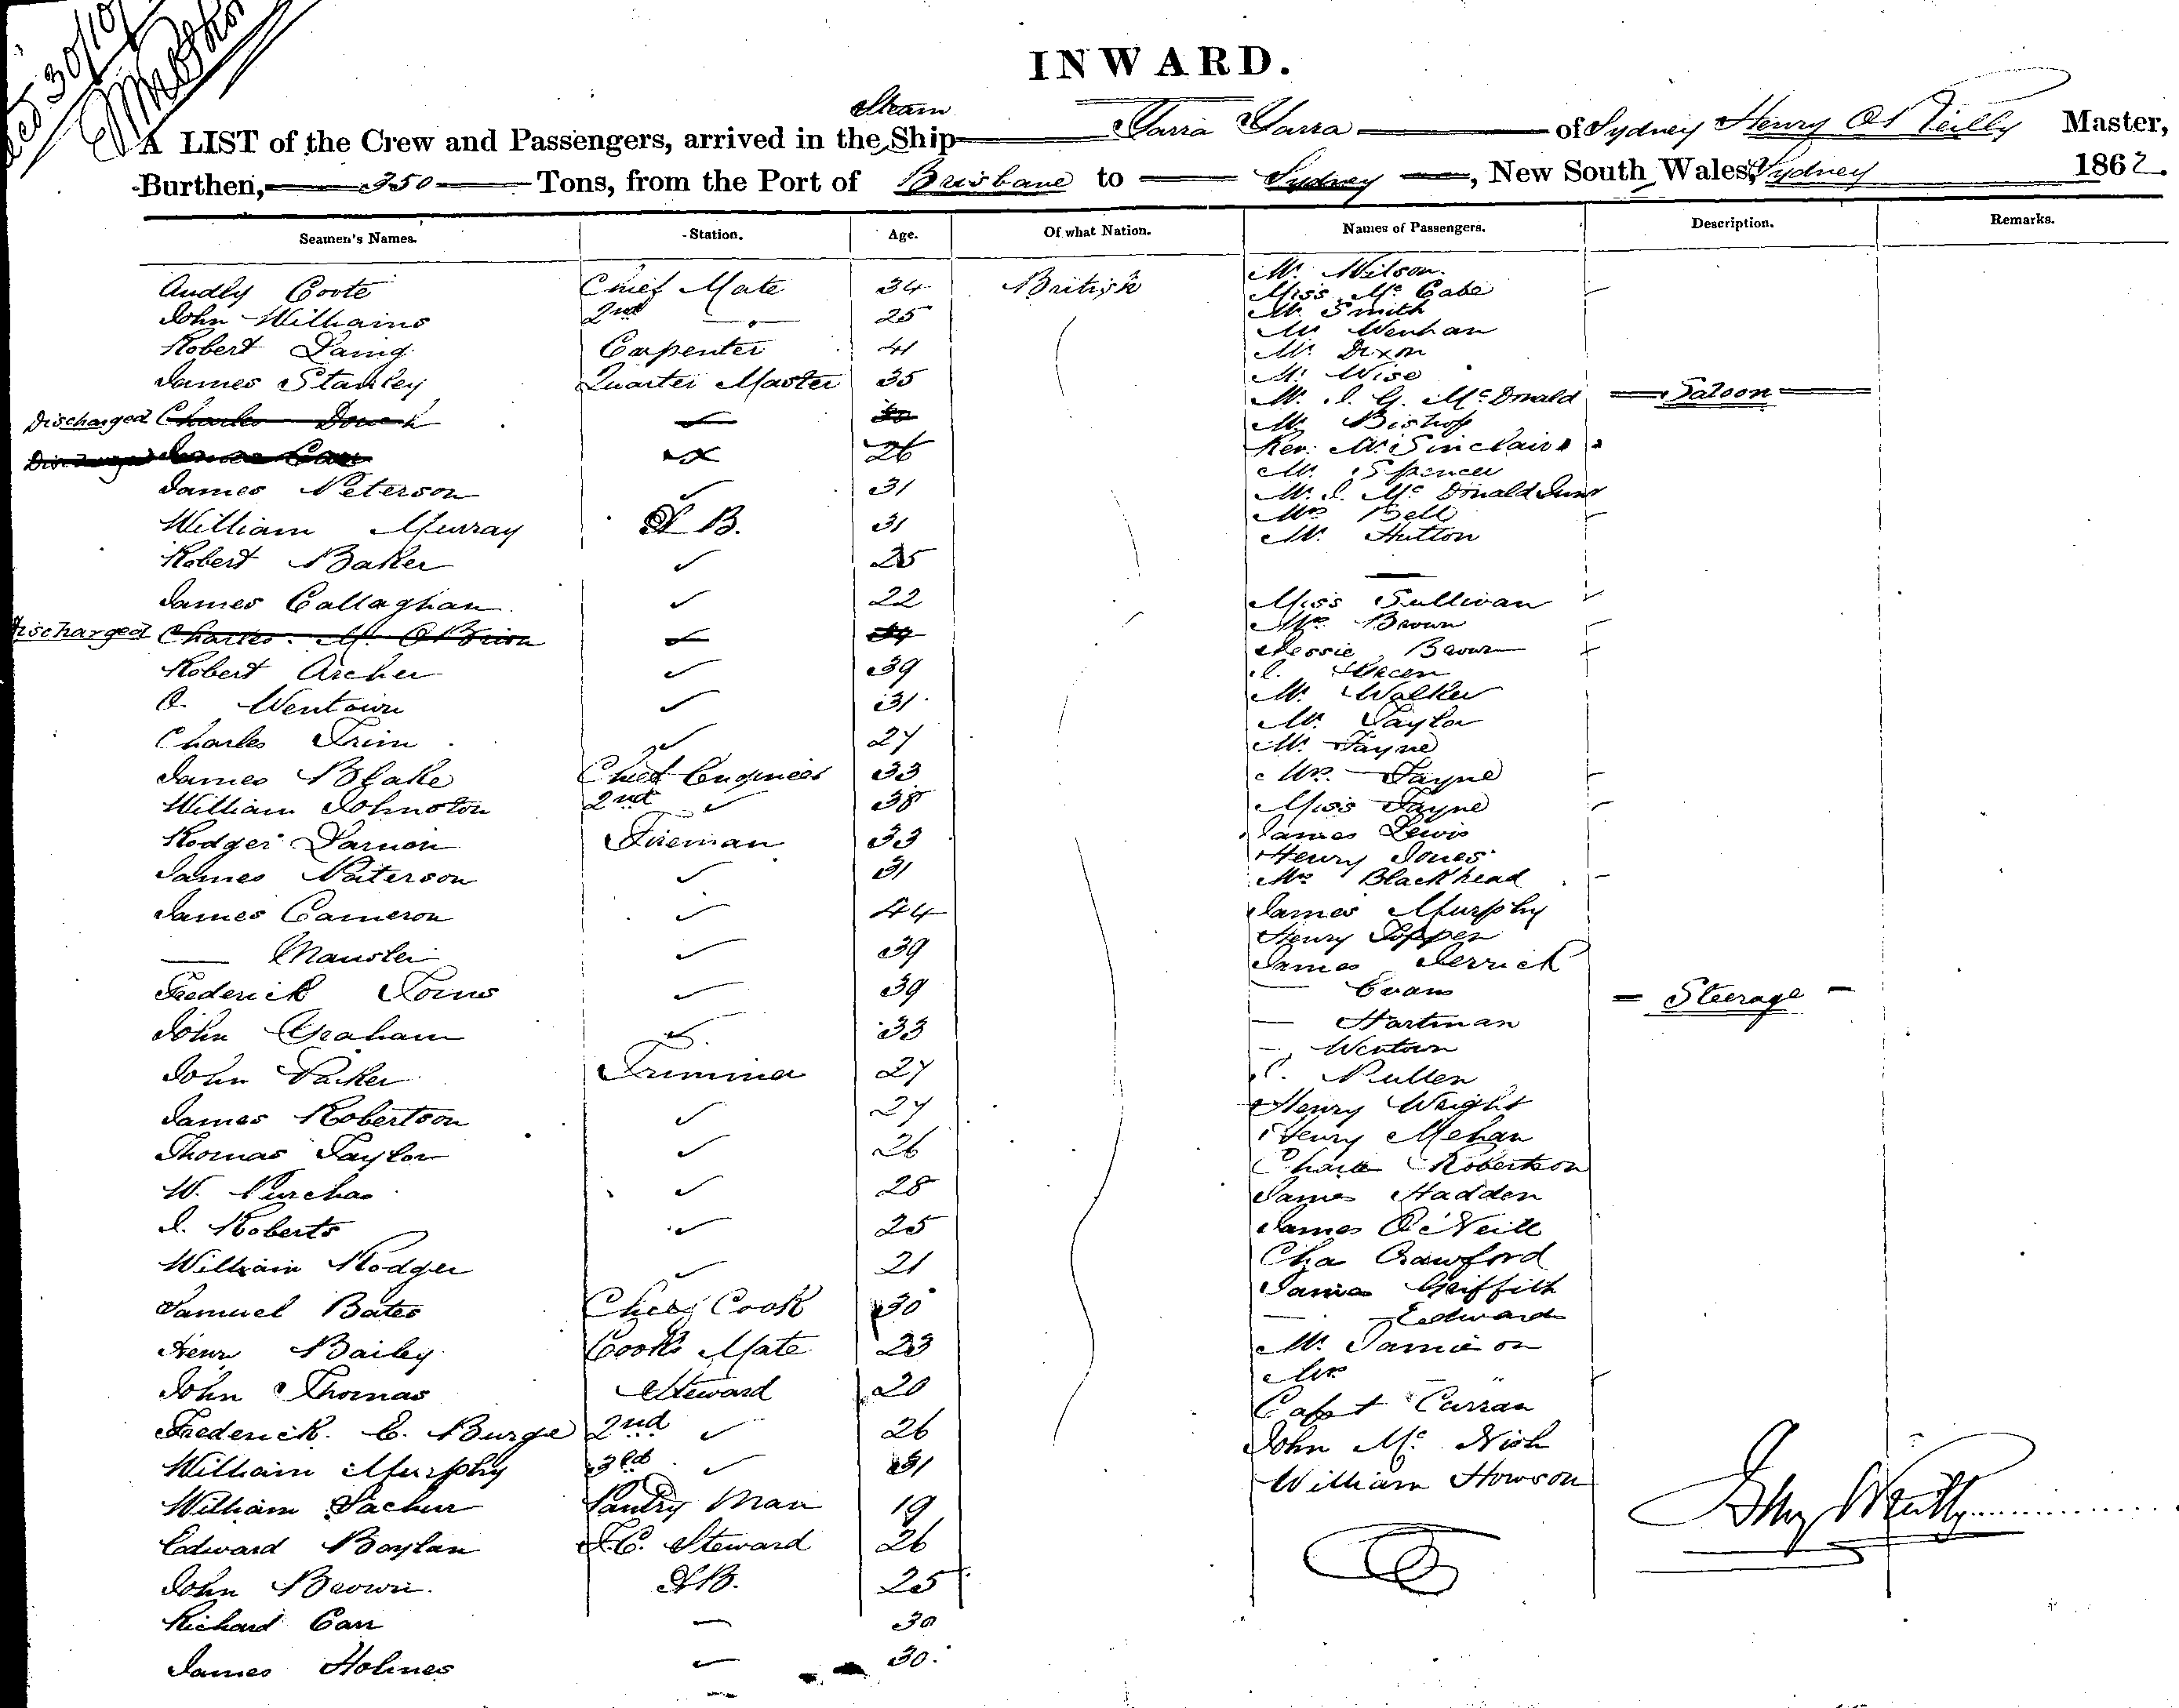 INWARD.
A LIST of the Crew and Passengers, arrived in the Steam Ship Yarra Yarra of Sydney Henry O'Reilly Master,
Burthen, 350 Tons, from the Port of Brisbane to Sydney, New South Wales, Sydney 1862.
Seamen's Names. Station. Age. Of what Nation. Names of Passengers. Description. Remarks.
Audly Coote Chief Mate 34 British
John Williams 2nd 25
Robert Laing Carpenter 41
James Stanley Quarter Master 35
Discharged Charles
Discharged 26
James Peterson ✓ 31
William Murray A B. 31
Robert Baker ✓ 25
James Callaghan ✓ 22
Discharged Charles M. O'Brien
Robert Archer ✓ 39
Wentown ✓ 31
Charles Trim ✓ 27
James Blake Chief Engineer 33
William Johnston 2nd ✓ 38
Rodger Fireman 33
James Paterson ✓ 31
James Cameron ✓ 44
— ✓ 39
Frederick Toms ✓ 39
John Graham ✓ 33
John Parker Trimmer 27
James Robertson ✓ 27
Thomas Taylor ✓ 26
W. Purchas ✓ 28
J. Roberts ✓ 25
William Rodger ✓ 21
Samuel Bates Chief Cook 30
Henry Bailey Cooks Mate 23
John Thomas Steward 20
Frederick. E. Burge 2nd ✓ 26
William Murphy 3rd ✓ 31
William Pantry Man 19
Edward Boylan F.C. Steward 26
John Brown. AB. 25
Richard Carr 30
James Holmes 30.
Mr. Wilson.
Miss McCabe
Mr. Smith
Mr Wenhan
Mr. Dixon
Mr Wise
Mr. J. G. McDonald Saloon
Mr Bishop
Rev. Mr Sinclair
Mr. Spencer
Mr. J. McDonald Junr
Mrs Bell
Mr. Hutton
Miss Sullivan
Mrs Brown
Jessie Brown
J. Green
Mr. Walker
Mr. Taylor
Mr. Fayne
Mrs. Fayne
Miss Fayne
James Lewis
Henry Jones
Mrs Blackhead
James Murphy
Henry Topper
James Derrick
— Evans
— Hartman Steerage
— Wentown
Pullen
Henry Wright
Henry Mehan
Robertson
James Hadden
James O'Neill
Cha Crawford
James Griffith
— Edwards
Mr. Jamieson
Mrs "
Capt Curran
John McNish
William Howson
Hy O'Reilly